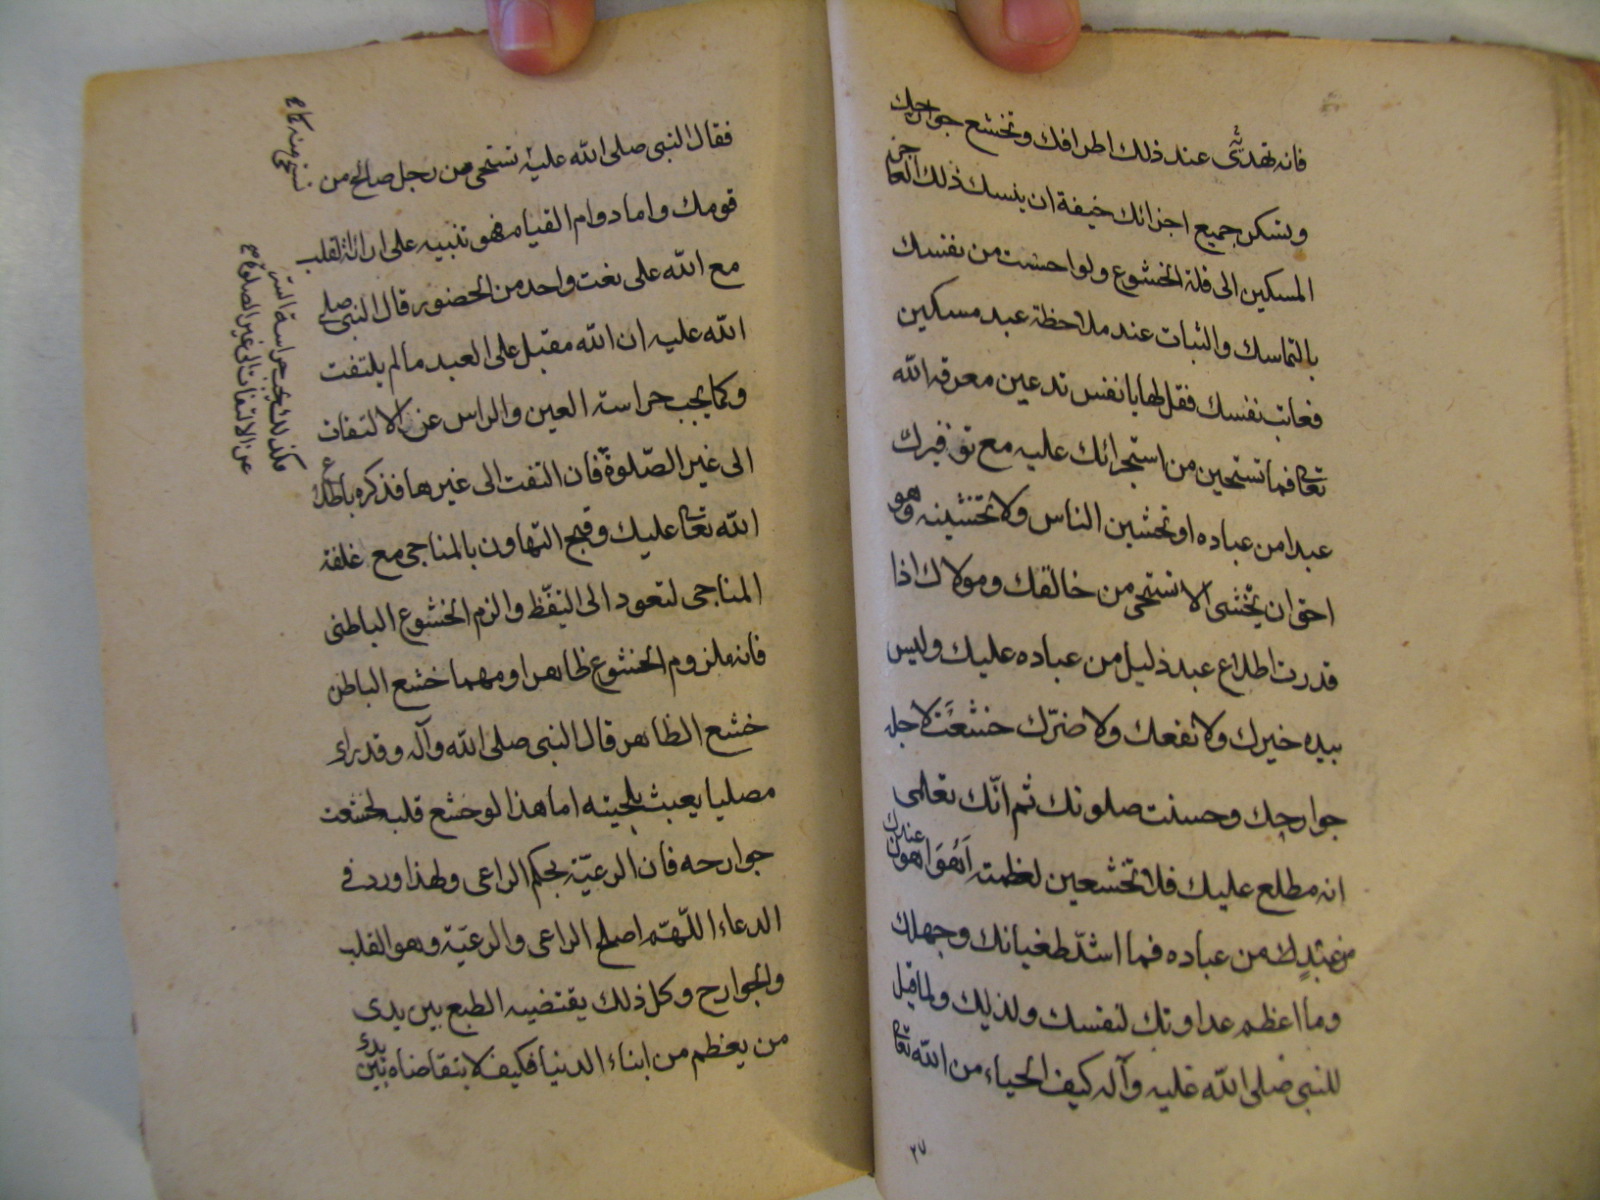 فانه تهدئ عند ذلك اطرافك وتخشع جوارحك
وتسكن جميع اجزائك خيفة ان ينسبك ذلك العاجز
المسكين الى قلة الخشوع ولو احسنت من نفسك
بالتماسك والثبات عند ملاحظة عبد مسكين
فعاتب نفسك فقل لها يا نفس تدعين معرفة الله
تعالى فما تستحين من استجرائك عليه مع توقيرك
عبدا من عباده او تخشين الناس ولا تخشينه وهو
احق ان يخشى الا تستحى من خالقك ومولاك اذا
قدرت اطلاع عبد ذليل من عباده عليك وليس
بيده خيرك ولا نفعك ولا ضرك خشعت لاجله
جوارحك وحسنت صلوتك ثم انك تعلمى
انه مطلع عليك فلا تخشعين لعظمته اهو اهون عندك
من عبد من عباده فما اشد طغيانك وجهلك
وما اعظم عداوتك لنفسك ولذلك ولما قيل
للنبى صلى الله عليه وآله كيف الحياء من الله تعالى
٢٧
فقال النبى صلى الله عليه تستحى من رجل صالح من
قومك واما دوام القيام فهو تنبيه على القلب
مع الله على نعت واحد من الحضور قال النبى صلى
الله عليه ان الله مقبل على العبد ما لم يلتفت
وكما يجب حراسة العين والراس عن الالتفات
الى غير الصلوة فان التفت الى غيرها فذكره باطلاع
الله تعالى عليك وقبح التهاون بالمناجى مع غفلة
المناجى لتعود الى التيقظ والزم الخشوع الباطنى
فانه ملزوم الخشوع ظاهرا ومهما خشع الباطن
خشع الظاهر قال النبى صلى الله وآله وقد راى
مصليا يعبث بلحيته اما هذا لو خشع قلبه لخشعت
جوارحه فان الرعية بحكم الراعى ولهذا ورد فى
الدعاء اللهم اصلح الراعى والرعية وهو القلب
والجوارح وكل ذلك يقتضيه الطبع بين يدى
من يعظم من ابناء الدنيا فكيف لا يتقاضاه بين يدى
تستحى منه كما
فكذلك يجب حراسة السر
عن الالتفات الى غير الصلوة